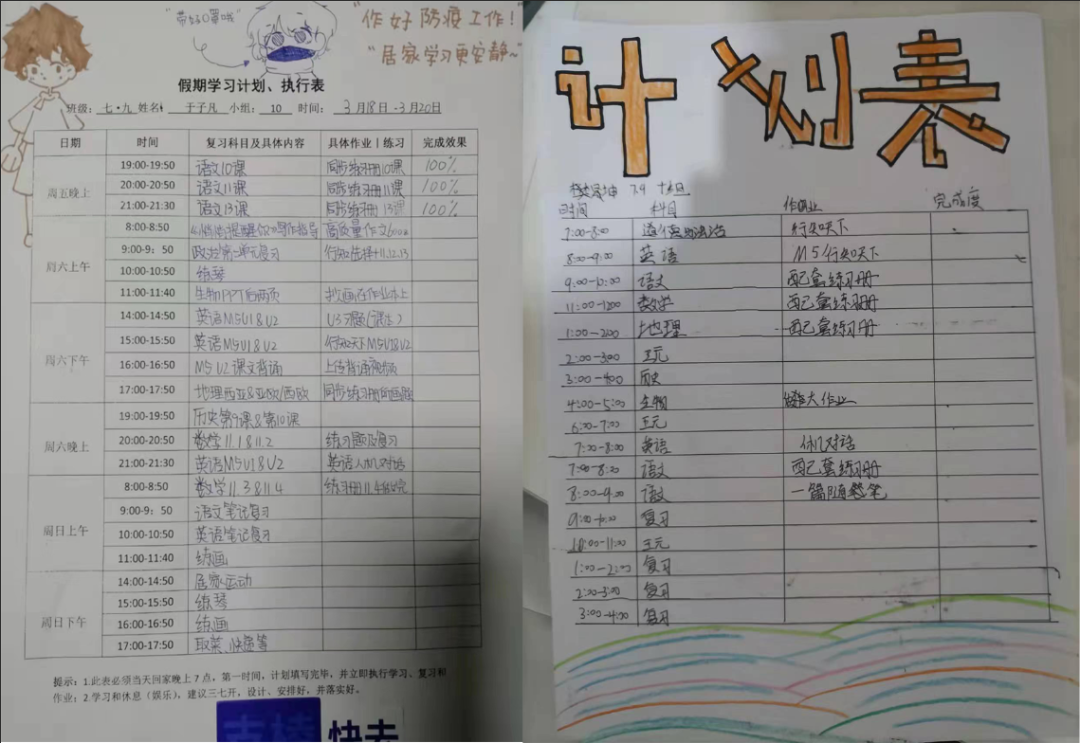 "带好口罩哦"
"作好防疫工作!
"居家学习更安静~"
假期学习计划、执行表
班级: 七·九 姓名: 于子凡 小组: 10 时间: 3月18日-3月20日
日期 时间 复习科目及具体内容 具体作业丨练习 完成效果
周五晚上
19:00-19:50 语文10课 同步练习册10课 100%
20:00-20:50 语文11课 同步练习册11课 100%
21:00-21:30 语文13课 同步练习册13课 100%
周六上午
8:00-8:50 写作指导 高质量作文600字
9:00-9:50 政治第二单元复习 行知选择+11.12.13
10:00-10:50 练琴
11:00-11:40 生物PPT后两页 抄画在作业本上
周六下午
14:00-14:50 英语M5U1&U2 U3习题
15:00-15:50 英语M5U1&U2 行知天下M5U1&U2
16:00-16:50 M5U2课文背诵 上传背诵视频
17:00-17:50 地理西亚&亚欧/西欧 同步练习册
周六晚上
19:00-19:50 历史第9课&第10课
20:00-20:50 数学11.1&11.2 练习题及复习
21:00-21:30 英语M5U1&U2 英语人机对话
周日上午
8:00-8:50 数学11.3&11.4 练习册11.4
9:00-9:50 语文笔记复习
10:00-10:50 英语笔记复习
11:00-11:40 练画
周日下午
14:00-14:50 居家运动
15:00-15:50 练琴
16:00-16:50 练画
17:00-17:50 取菜、快递等
提示:1.此表必须当天回家晚上7点,第一时间,计划填写完毕,并立即执行学习、复习和
作业;2.学习和休息(娱乐),建议三七开,设计、安排好,并落实好。
计划表
7.9
时间 科目 作业 完成度
7:00-8:00 道德与法治 行知天下
8:00-9:00 英语 M5行知天下
9:00-10:00 语文 配套练习册
11:00-12:00 数学 配套练习册
1:00-2:00 地理 配套练习册
2:00-3:00 玩
3:00-4:00 历史
4:00-5:00 生物 大作业
6:00-7:00 玩
7:00-8:00 英语 人机对话
7:00-8:00 语文 配套练习册
8:00-9:00 语文 一篇随笔
9:00-10:00 复习
10:00-11:00 玩
1:00-2:00 复习
2:00-3:00 复习
3:00-4:00 复习